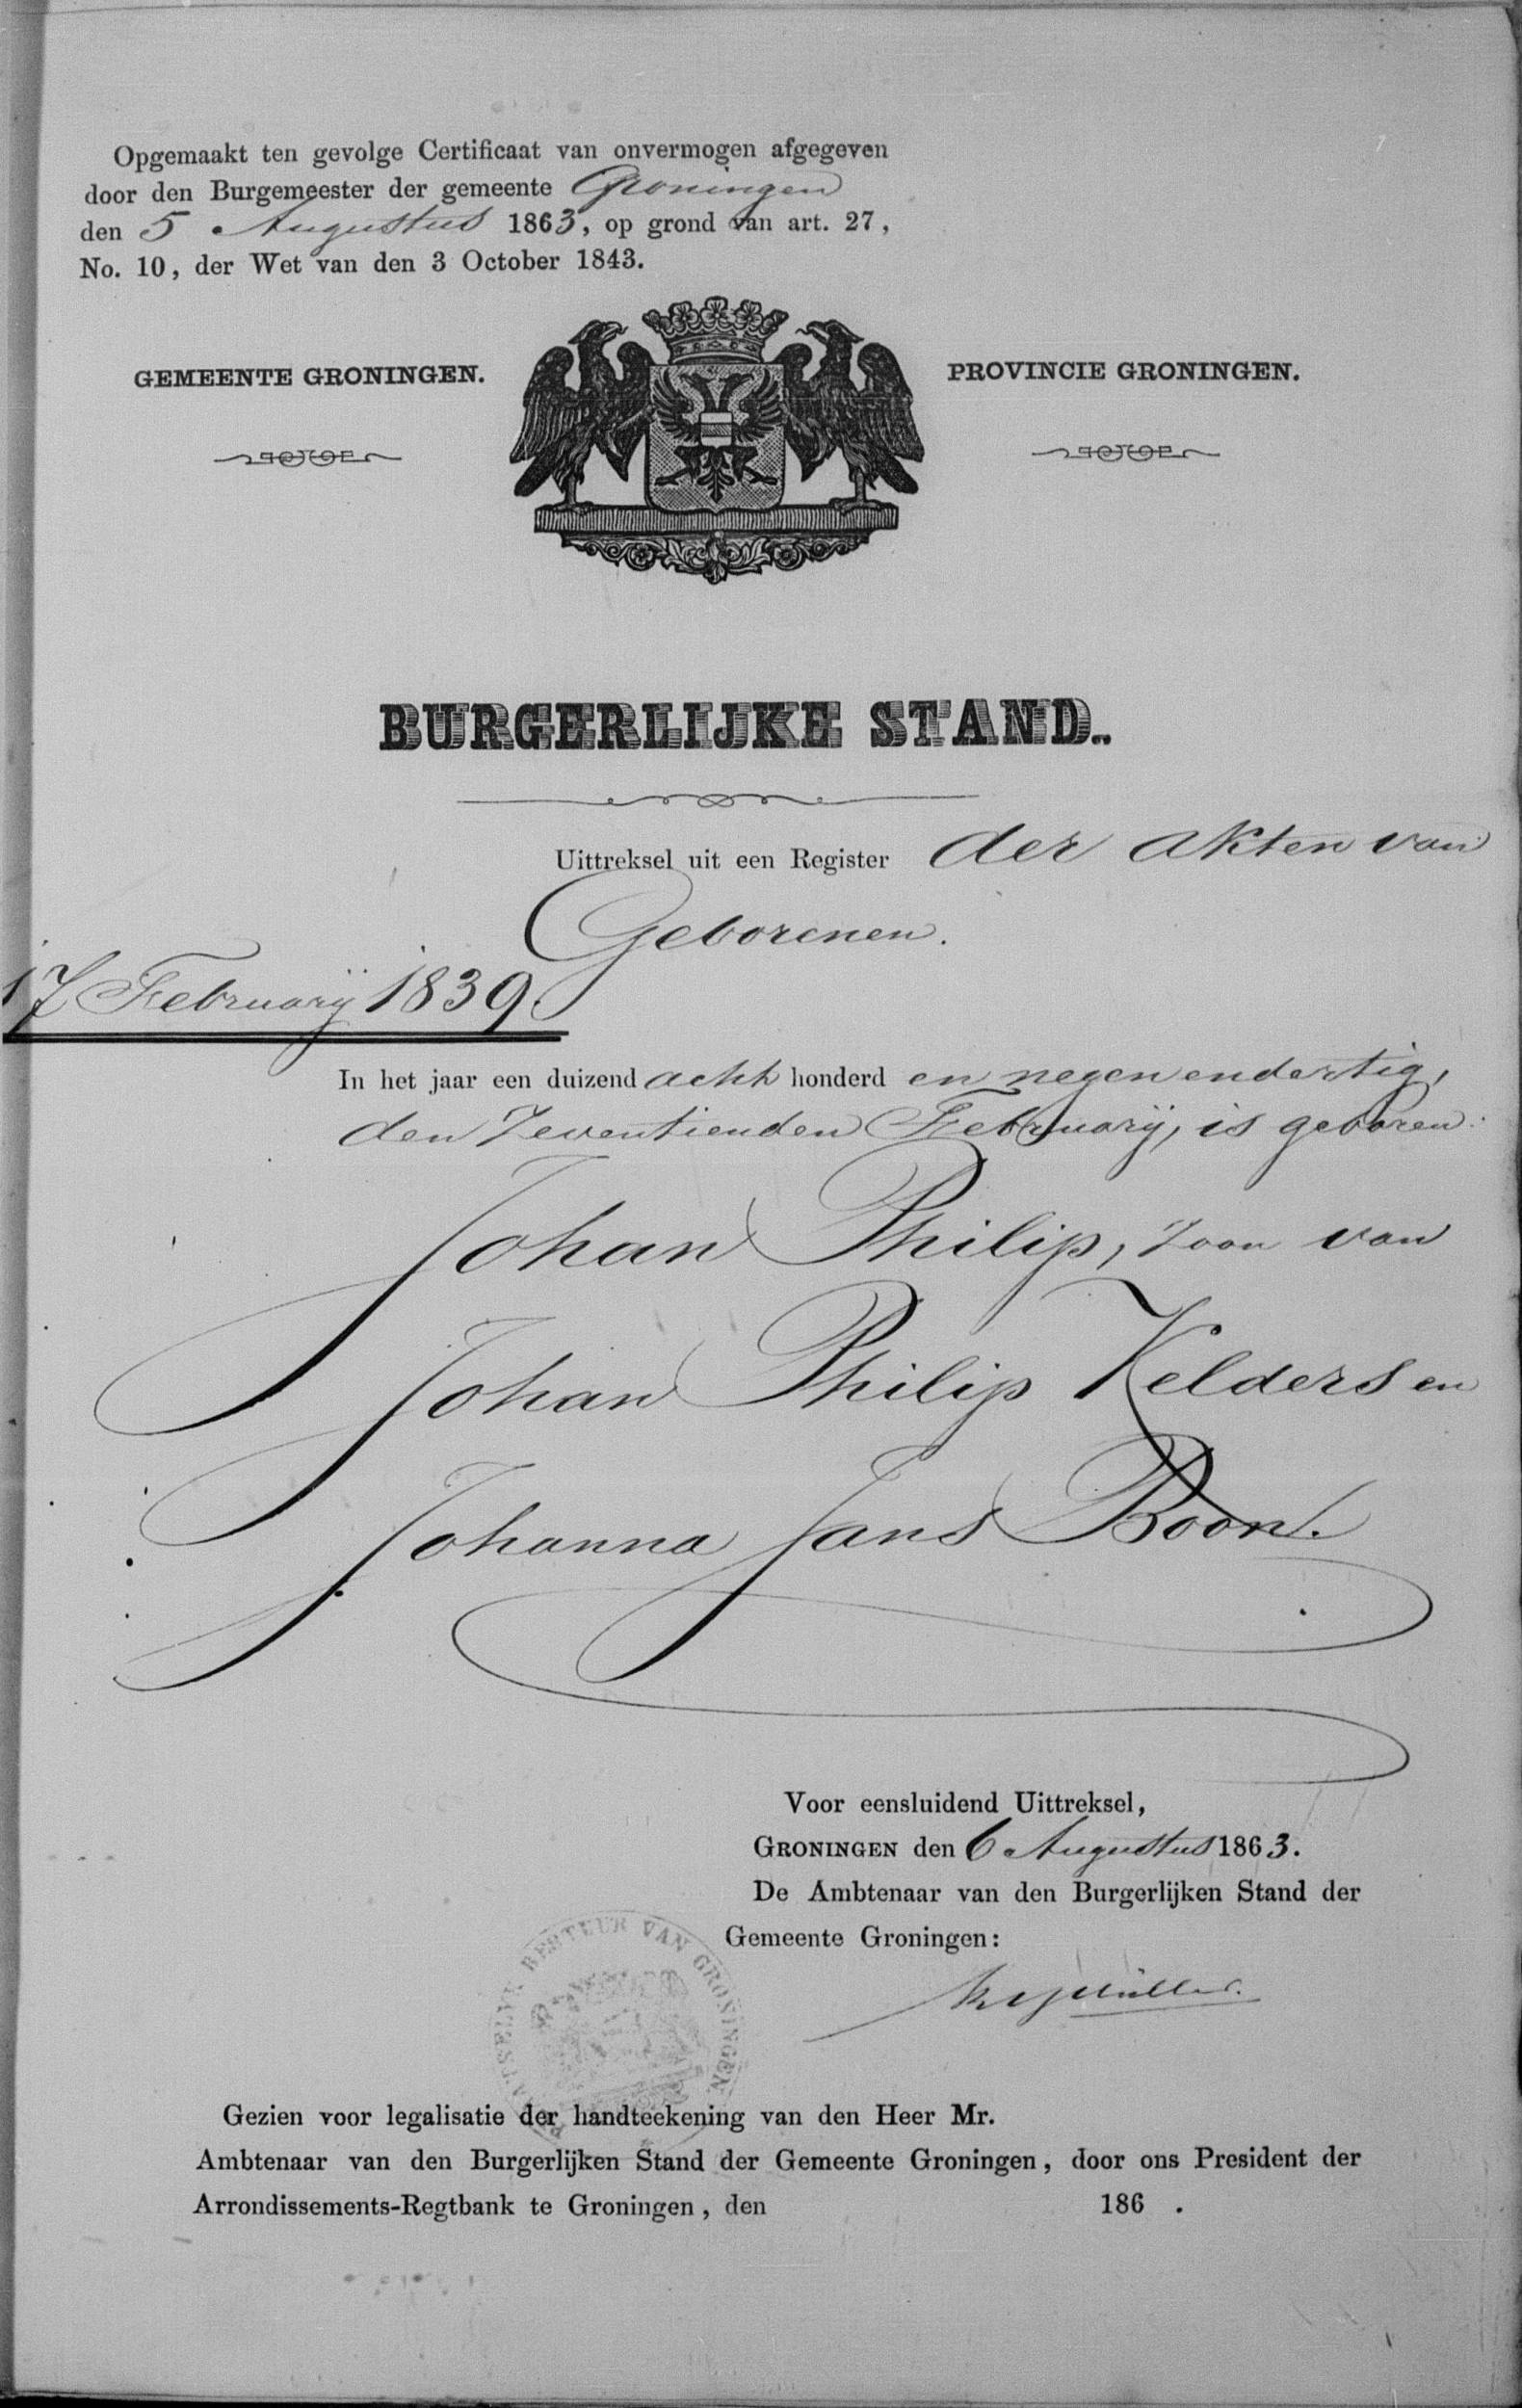 Opgemaakt ten gevolge Certificaat van onvermogen afgegeven
door den Burgemeester der gemeente Groningen
den 5 Augustus 1863, op grond van art. 27,
No. 10, der Wet van den 3 October 1843.
GEMEENTE GRONINGEN.
PROVINCIE GRONINGEN.
BURGERLIJKE STAND.
Uittreksel uit een Register der akten van
Geborenen.
17 Februarij 1839.
In het jaar een duizend acht honderd en negenendertig,
den zeventienden Februarij, is geboren:
Johan Philip, zoon van
Johan Philip Kelders en
Johanna Jans Boon.
Voor eensluidend Uittreksel,
GRONINGEN den 6 Augustus 1863.
De Ambtenaar van den Burgerlijken Stand der
Gemeente Groningen:
Müller.
PLAATSELIJK BESTUUR VAN GRONINGEN
Gezien voor legalisatie der handteekening van den Heer Mr.
Ambtenaar van den Burgerlijken Stand der Gemeente Groningen, door ons President der
Arrondissements-Regtbank te Groningen, den 186 .